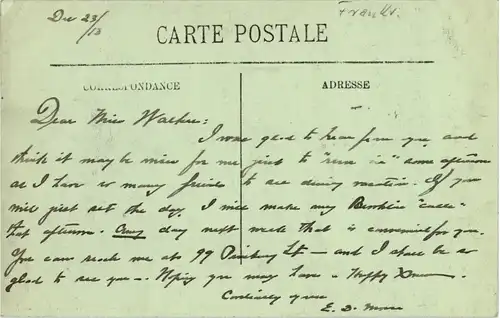 Dec 23/13
CARTE POSTALE
CORRESPONDANCE
ADRESSE
Dear Miss Walker:
I was glad to hear from you, and
think it may be nicer for me just to "run in" some afternoon
as I have so many friends to see during vacation. If you
will just set the day, I will make my Brookline "calls"
that afternoon. Any day next week that is convenient for you.
You can reach me at 99 Pinckney St. — and I shall be so
glad to see you —. Hoping you may have a Happy Xmas
Cordially yours
E. D.